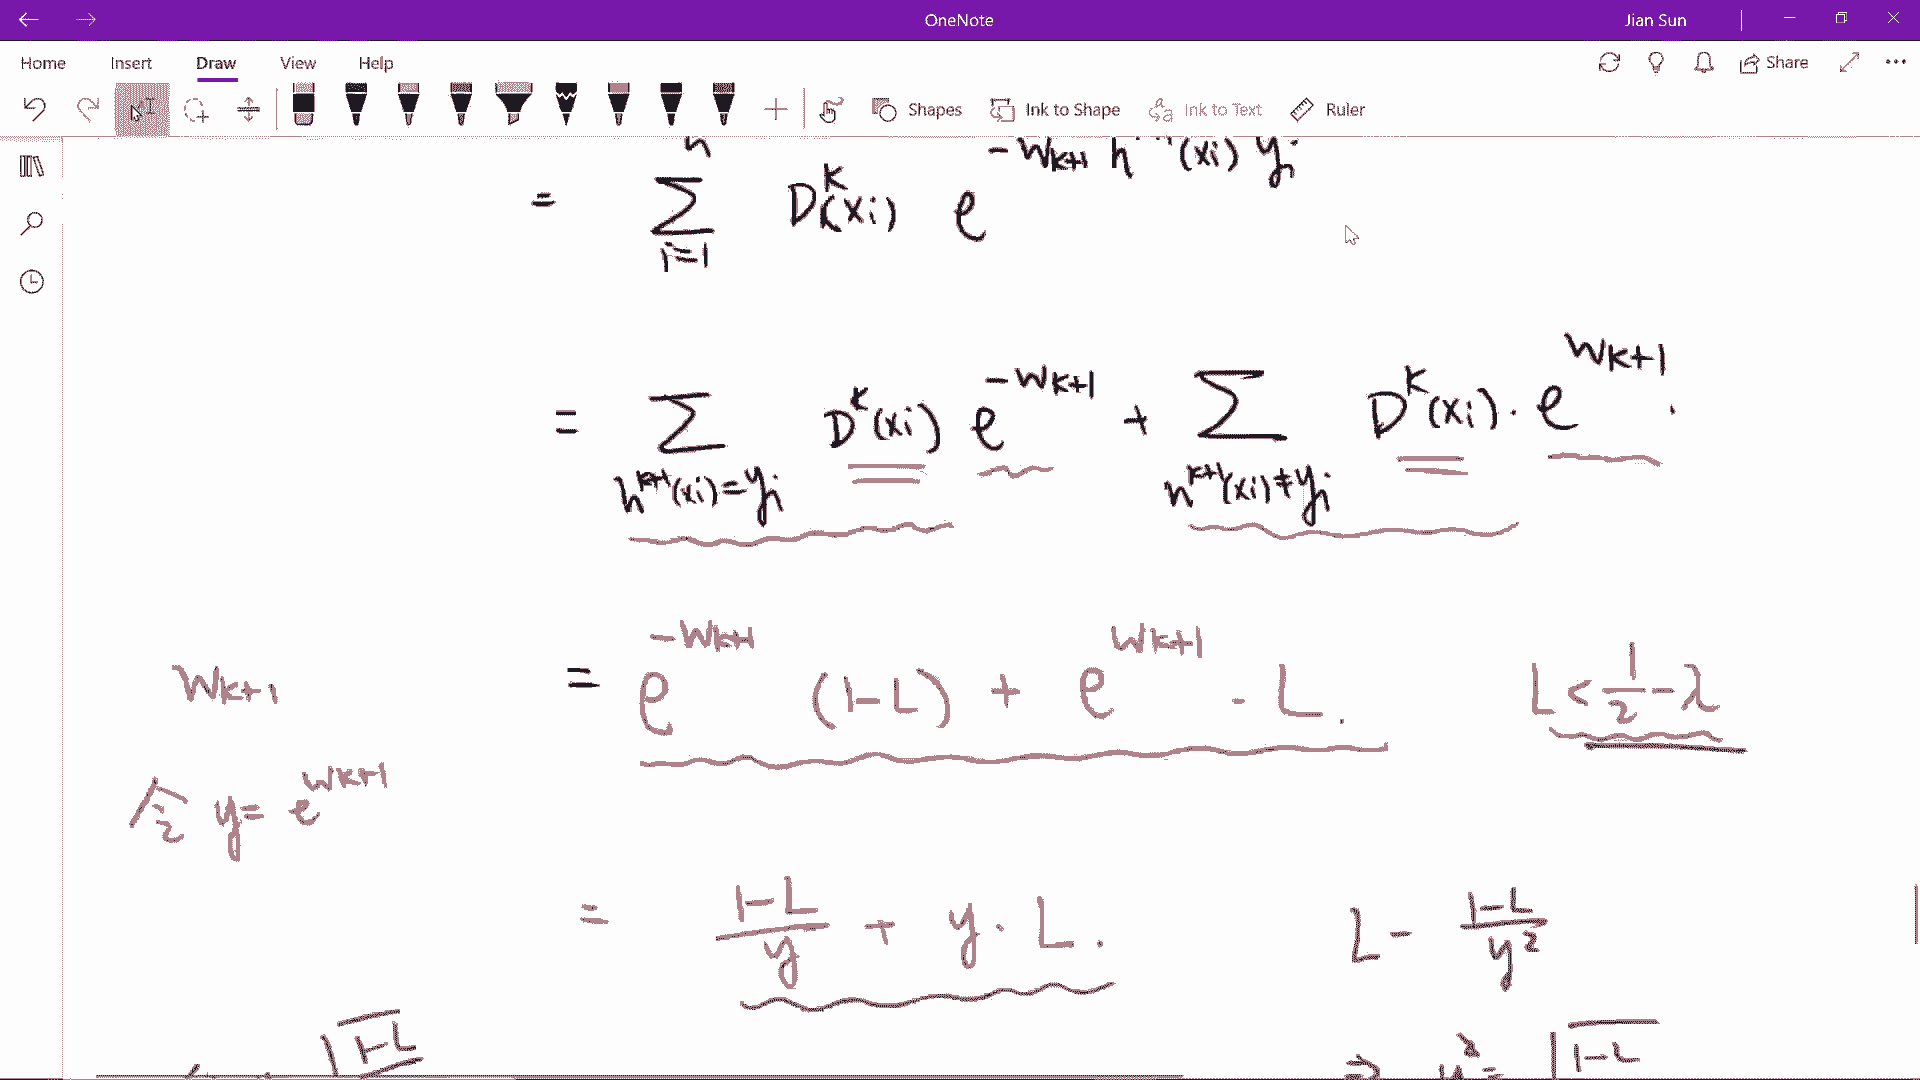 OneNote
Jian Sun
Home Insert Draw View Help
Share
Shapes Ink to Shape Ink to Text Ruler
= ∑_{i=1}^{n} D^k(xi) e^{-Wk+1 h (xi) yi}
= ∑_{h^{k+1}(xi)=yi} D^k(xi) e^{-Wk+1} + ∑_{h^{k+1}(xi)≠yi} D^k(xi) · e^{Wk+1} .
Wk+1
= e^{-Wk+1} (1-L) + e^{Wk+1} · L.
L < 1/2 - λ
令 y = e^{Wk+1}
= (1-L)/y + y · L.
L - (1-L)/y^2
√(1-L)
⇒ y^* = √(1-L)